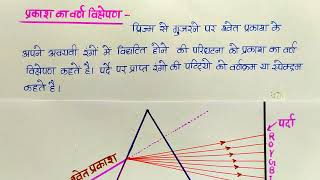 प्रकाश का वर्ण विक्षेपण -
प्रिज्म से गुजरने पर श्वेत प्रकाश के
अपने अवयवी रंगों में विघटित होने की परिघटना को प्रकाश का वर्ण
विक्षेपण कहते है। पर्दे पर प्राप्त रंगो की पट्टियो को वर्णक्रम या स्पेक्ट्रम
कहते है।
पर्दा
श्वेत प्रकाश
R
O
Y
G
B
I